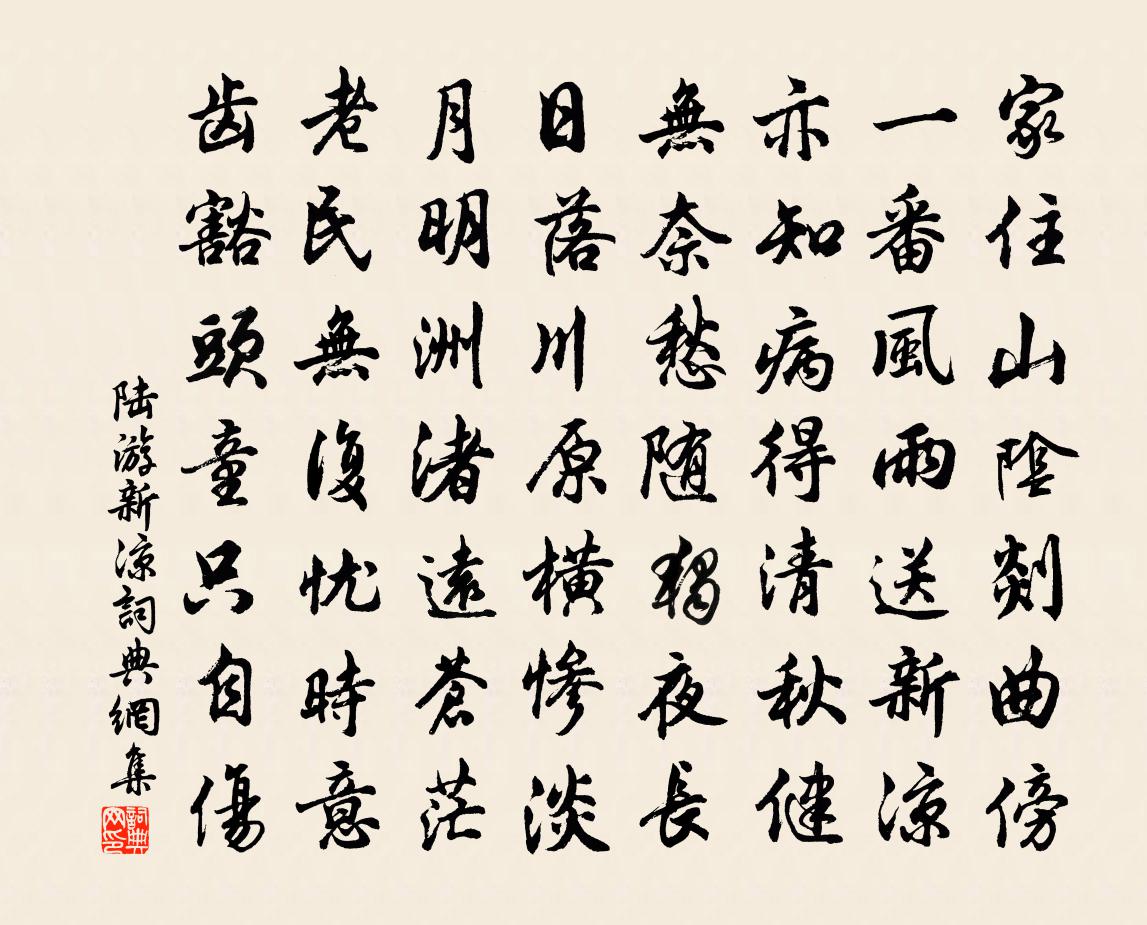 家住山陰剡曲傍
一番風雨送新涼
亦知病得清秋健
無奈愁随獨夜長
日落川原横慘淡
月明洲渚遠蒼茫
老民無復忧時意
齿豁頭童只自傷
陆游新涼詞典網集
詞典
网印